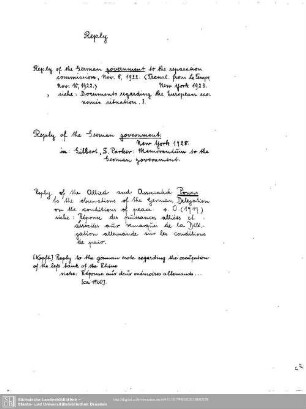 Reply
Reply of the German government to the reparation
commission, Nov. 8, 1922. (Transl. from le Temps
Nov. 10, 1922.) New York 1923.
siehe: Documents regarding the European eco-
nomic situation. 1.
Reply of the German government.
New York 1928.
in: Gilbert, S. Parker: Memorandum to the
German government.
Reply of the Allied and Associated Powers
to the observations of the German Delegation
on the conditions of peace. o. O. (1919)
siehe: Réponse des puissances alliées et
associées aux remarques de la Délé-
gation allemande sur les conditions
de paix.
[Kopft.] Reply to the german note regarding the occupation
of the left bank of the Rhine
siehe: Réponse aux deux mémoires allemands...
Sächsische Landesbibliothek –
Staats- und Universitätsbibliothek Dresden